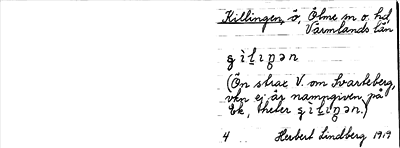 Killingen, ö, Ölme sn o. hd
Värmlands län
(Ön strax V. om Svarteberg,
vkn ej är namngiven på
Ek, heter
4 Herbert Lindberg 1919